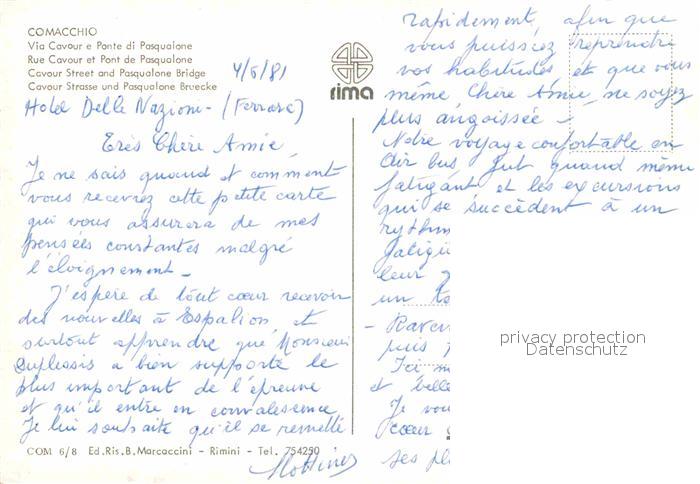 COMACCHIO
Via Cavour e Ponte di Pasqualone
Rue Cavour et Pont de Pasqualone
Cavour Street and Pasqualone Bridge
Cavour Strasse und Pasqualone Bruecke
rima
4/6/81
Hotel Delle Nazioni - (Ferrara)
Très Chère Amie,
Je ne sais quand et comment
vous recevrez cette petite carte
qui vous assurera de mes
pensées constantes malgré
l'éloignement -
J'espère de tout cœur recevoir
des nouvelles à Espalion et
surtout apprendre que Monsieur
Duplessis a bien supporté le
plus important de l'épreuve
et qu'il entre en convalescence
Je lui souhaite qu'il se remette
rapidement, afin que
vous puissiez reprendre
vos habitudes, et que vous
même, Chère Amie, ne soyez
plus angoissée -
Notre voyage confortable en
Air bus, fut quand même
fatigant et les excursions
qui se succèdent à un
rythm
fatigu
leur
un
- Raven
puis
Ici m
et belle
Je vou
cœur
ses pl
COM 6/8 Ed.Ris.B.Marcaccini - Rimini - Tel. 754250
privacy protection
Datenschutz